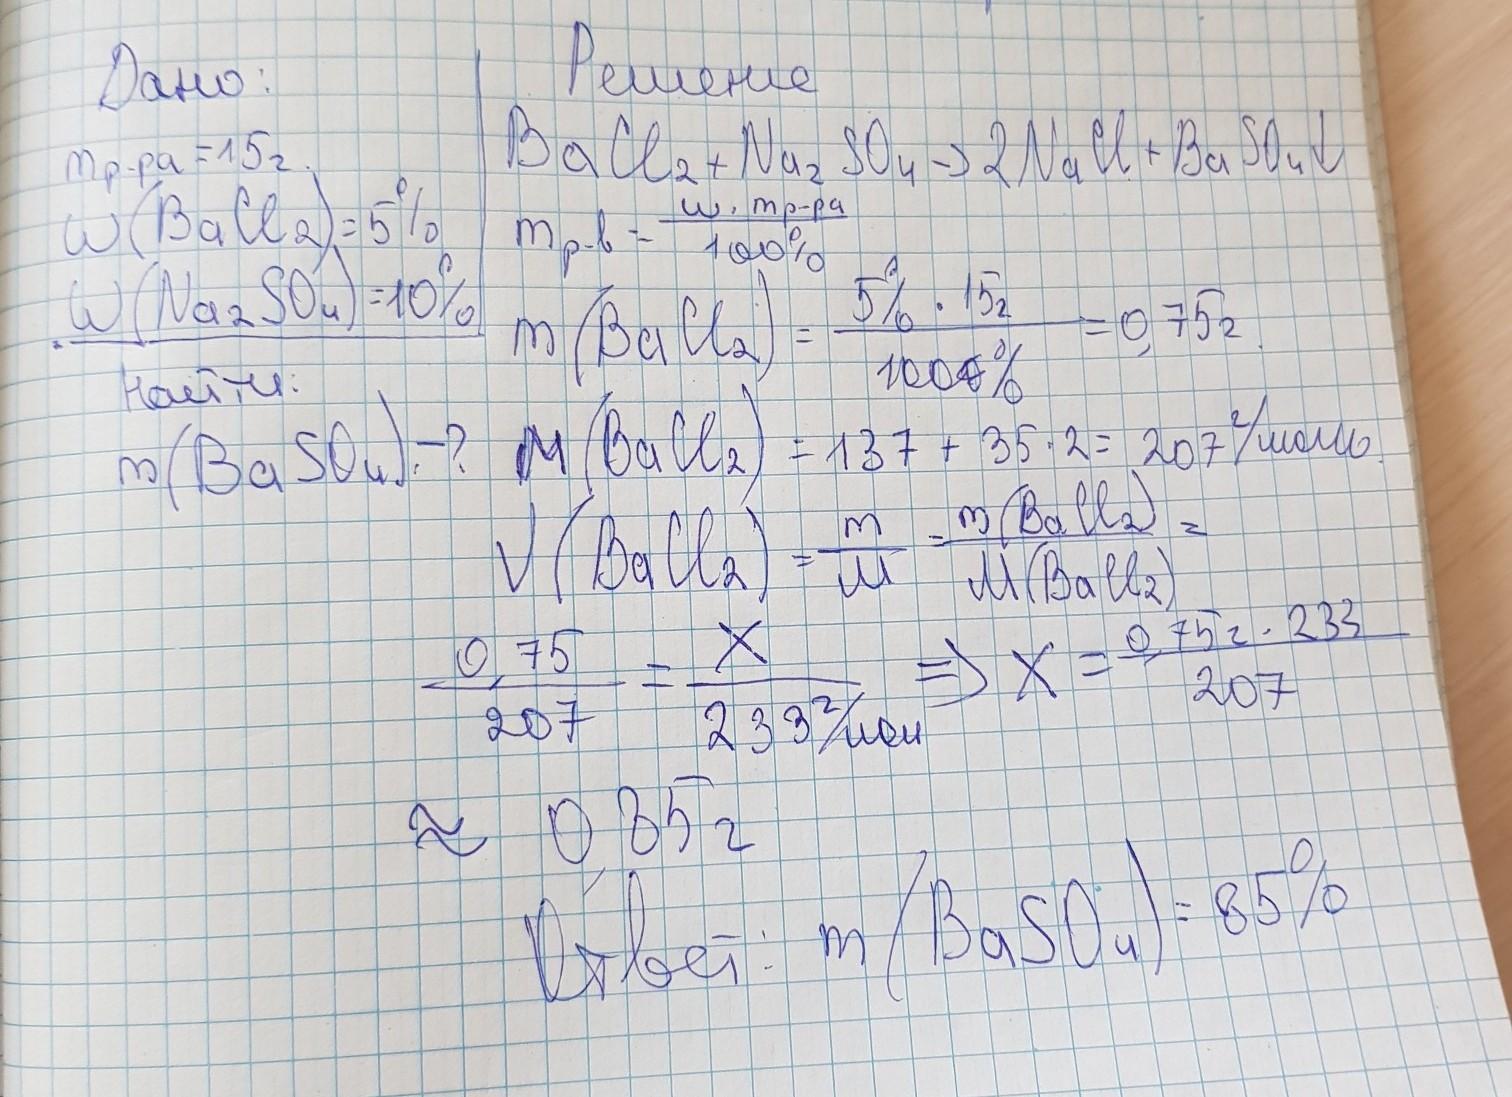 Дано:
mр-ра = 15г.
ω(BaCl₂) = 5%
ω(Na₂SO₄) = 10%
Найти:
m(BaSO₄) - ?
Решение
BaCl₂ + Na₂SO₄ → 2NaCl + BaSO₄↓
mр-в = ω · mр-ра / 100%
m(BaCl₂) = 5% · 15г / 100% = 0,75г.
M(BaCl₂) = 137 + 35·2 = 207 г/моль.
V(BaCl₂) = m/M = m(BaCl₂)/M(BaCl₂) =
0,75/207 = X/233 г/мол ⇒ X = 0,75г · 233 / 207
≈ 0,85г
Ответ: m(BaSO₄) = 85%